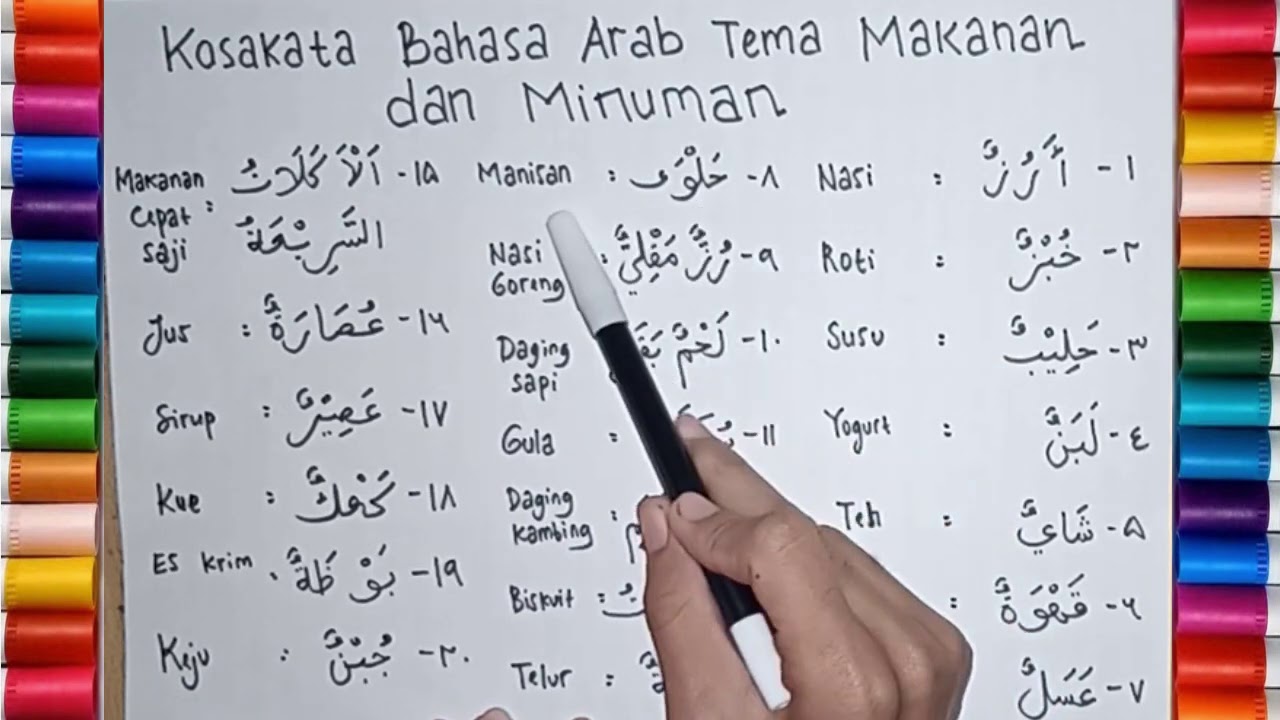 Kosakata Bahasa Arab Tema Makanan
dan Minuman
١ - أَرُزٌّ : Nasi
٢ - خُبْزٌ : Roti
٣ - حَلِيْبٌ : Susu
٤ - لَبَنٌ : Yogurt
٥ - شَايٌ : Teh
٦ - قَهْوَةٌ :
٧ - عَسَلٌ
٨ - حَلْوَى : Manisan
٩ - رُزٌّ مَقْلِيٌّ : Nasi
Goreng
١٠ - لَحْمٌ Daging
sapi
١١ - : Gula
Daging
kambing :
Biskuit :
Telur :
١٥ - اَلْأَكَلَاتُ Makanan
السَّرِيْعَةُ : Cepat
saji
١٦ - عُصَارَةٌ : Jus
١٧ - عَصِيْرٌ : Sirup
١٨ - كَعْكٌ : Kue
١٩ - بَوْظَةٌ : Es krim
٢٠ - جُبْنٌ : Keju